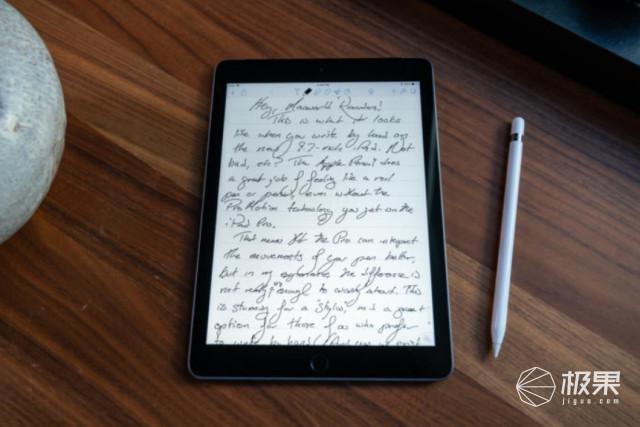 Hey, Macworld Readers!
This is what it looks
like when you write by hand on
the new 9.7-inch iPad. Not
bad, eh? The Apple Pencil does
a great job of feeling like a real
pen or pencil, even without the
ProMotion technology you get on the
iPad Pro.
That means that the Pro can interpret
the movements of your pen better,
but in my experience the difference is
not really enough to worry about. This
is stunning for a "stylus," and a great
option for those of us who prefer
to write by hand!
极果
jiguo.com